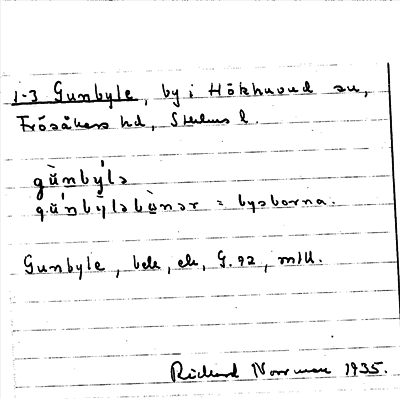 1-3 Gunbyle, by i Hökhuvud sn,
Frösåkers hd, Sthlms l.
gùnbýlə
gúnbỳləbùnər = bysborna.
Gunbyle, bek, ek, G. 92, mtl.
Rickard Norrman 1935.